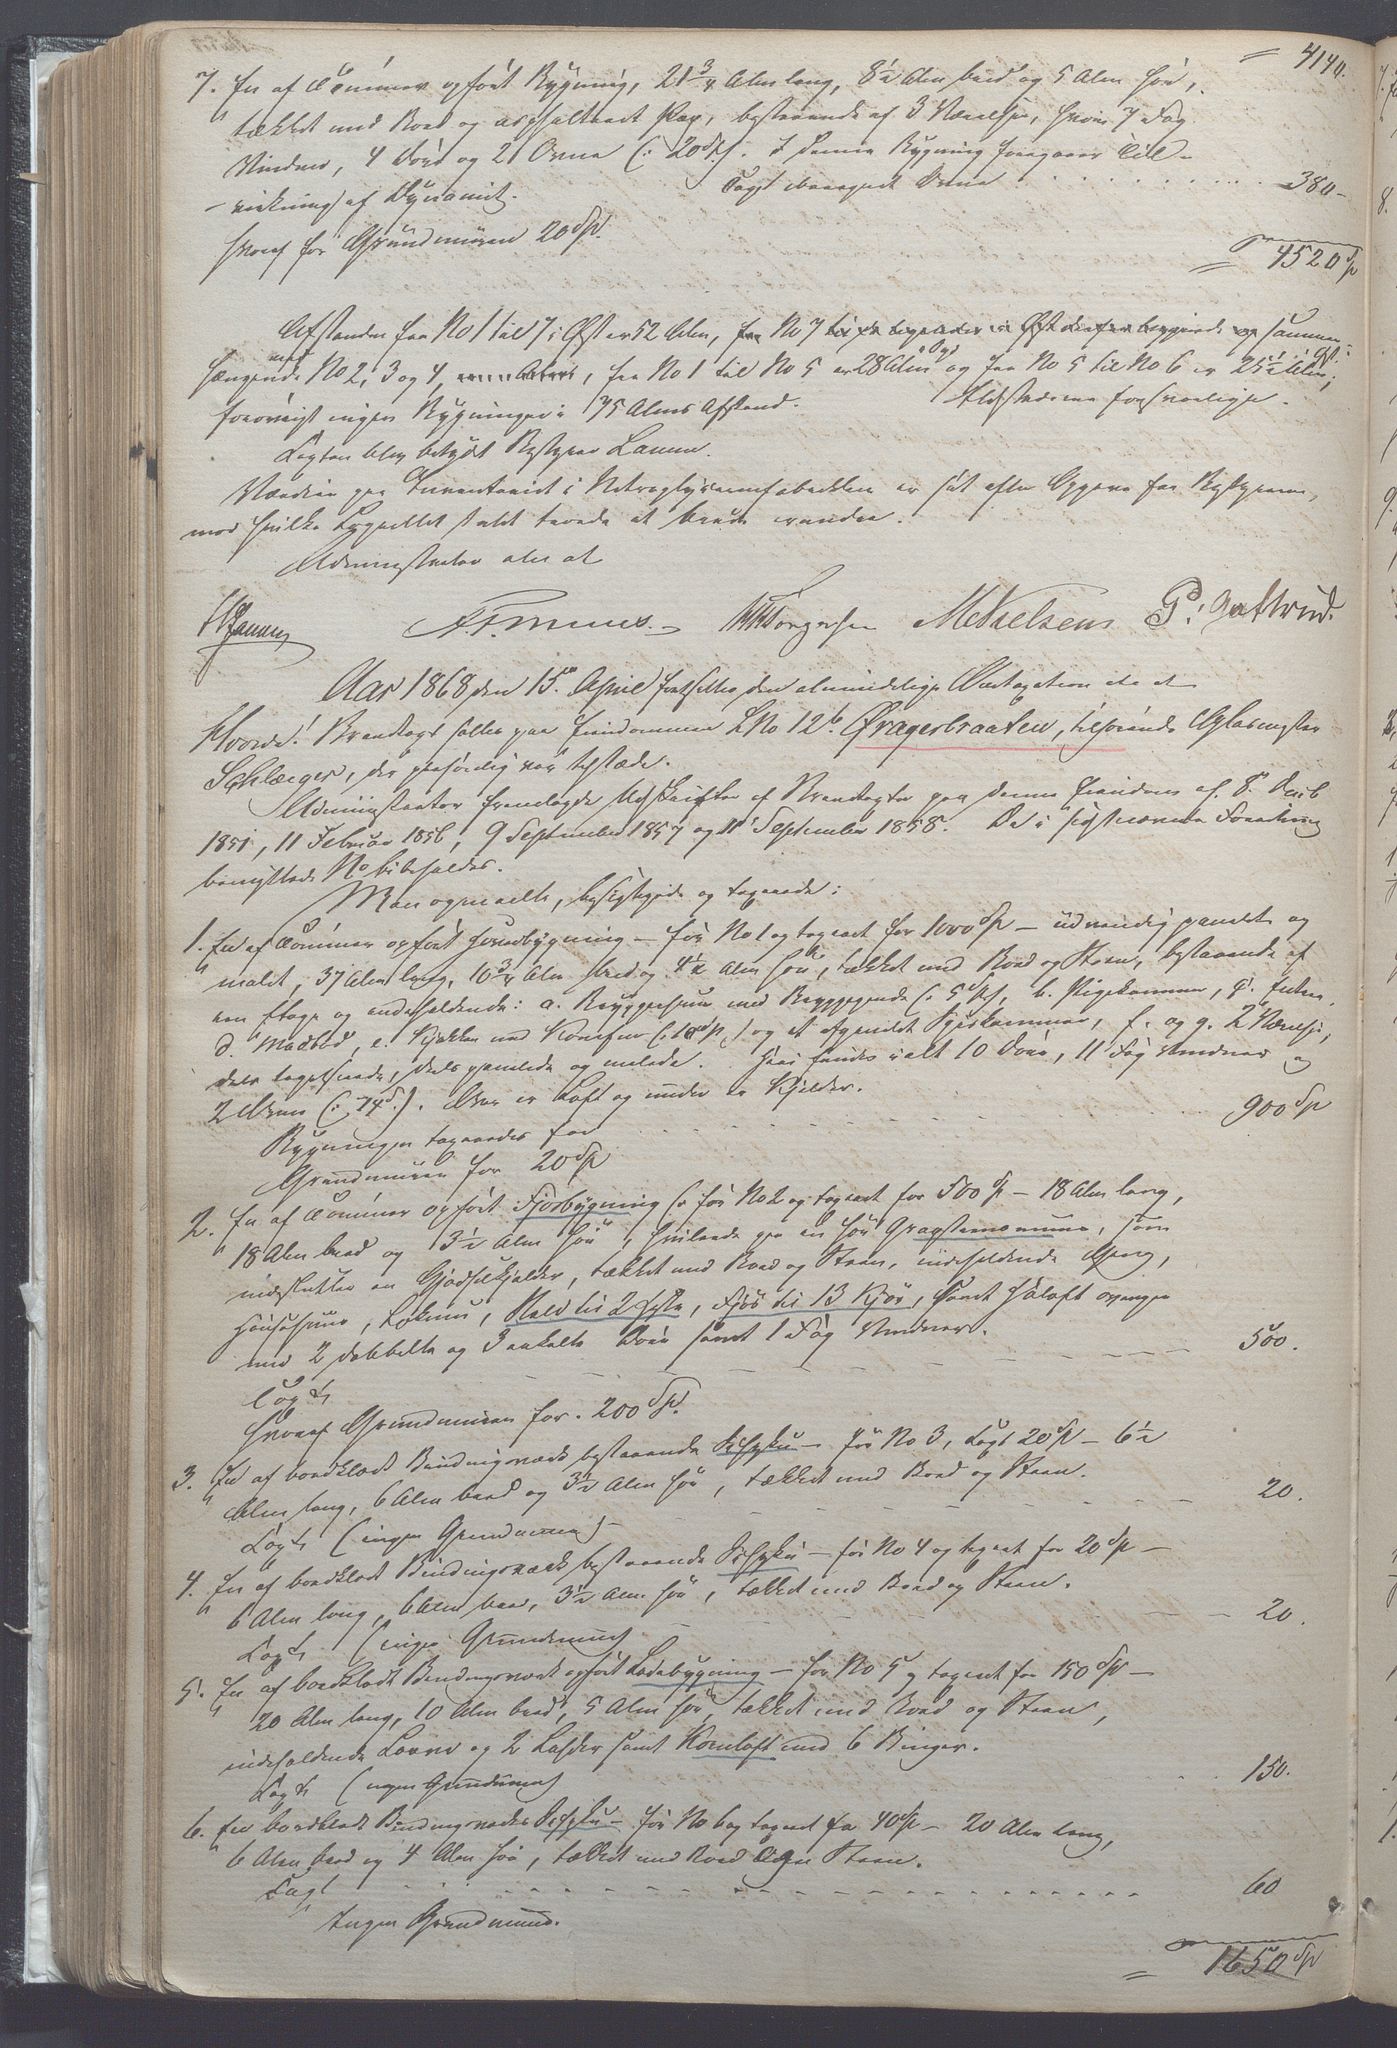 = 4140.
7. En af Tømmer opført Bygning, 21 3/4 Alen lang, 8 1/2 Alen bred og 5 Alen høi,
tækket med Bord og asphalteret Pap, bestaaende af 3 Værelser, hvori 7 Fag
Vinduer, 4 Døre og 2 Ovne (: 20 Sp). I denne Bygning foregaaer Til-
virkning af Dynamit. Taxt iberegnet Ovne . . . . . 380 -
hvoraf for Grundmuren 20 Sp.
= 4520 Sp
Afstanden fra No 1 til 7 i Øst er 52 Alen, fra No 7 sammen-
hængende med No 2, 3 og 4, fra No 1 til No 5 er 28 Alen og fra No 5 til No 6 er 25 1/2 Alen;
forøvrigt ingen Bygninger i 75 Alens Afstand. Ildstederne forsvarlige.
Taxten blev betydet Bestyrer Lamm.
Værdien paa Inventariet i Nitroglycerinfabrikken er sat efter Opgave fra Bestyreren,
mod hvilken Lagrettet intet havde at erindre.
Administrator
MTorgersen MNielsen P. Gulbrud.
Aar 1868 den 15de April fortsattes den almindelige Omtaxation
Hvorda! Brandtaxt holdes paa Eiendommen LNo 12b. Ovragersbraaten, tilhørende Glasmester
Schlæger, der personlig var tilstæde.
Administrator fremlagde Udskrifter af Brandtaxter paa denne Eiendom af 8 Decb
1851, 11 Februar 1856, 9 September 1857 og 11 September 1858. De i sidstnævnte Forretning
benyttede No bibeholdes.
Man opmaalte, besigtigede og taxerede:
1. En af Tømmer opført Hovedbygning - før No 1 og taxeret for 1000 Sp - udvendig panelet og
malet, 37 Alen lang, 10 3/4 Alen bred og 4 1/2 Alen høi, tækket med Bord og Steen, bestaaende af
een Etage og indeholdende: a. Bryggerhuus med Bryggepande (: 5 Sp), b. Pigekammer, c. Entree,
d. Madbod, e. Kjøkken med Komfur (: 10 Sp) og et afpanelet Spiskammer, f. og g. 2 Værelser,
dels tapetserede, dels panelede og malede. Heri findes ialt 10 Døre, 11 Fag Vinduer og
2 Ovne (: 14 Sp.). Over er Loft og under er Kjelder.
Bygningen taxeredes for . . . . . 900 Sp
Grundmuren for 20 Sp
2. En af Tømmer opført Fjøsbygning (: før No 2 og taxeret for 500 Sp - 18 Alen lang,
18 Alen bred og 3 1/2 Alen høi, hvilende paa en høi Graastensmuur, som
indslutter en Gjødselkjelder, tækket med Bord og Steen, indeholdende Gang,
Huusrum, Lokum, Stald til 2 Heste, Fjøs til 13 Kjør, samt Høloft ovenpaa
med 2 dobbelte og 3 enkelte Døre samt 1 Fag Vinduer.
Taxt . . . . . 500.
hvoraf Grundmuren for 200 Sp.
3. En af bordklædt Bindingsværk bestaaende Udskyku - før No 3, Taxt 20 Sp - 6 1/2
Alen lang, 6 Alen bred og 3 1/2 Alen høi, tækket med Bord og Steen.
Taxt (ingen Grundmuur) - . . . . . 20.
4. En af bordklædt Bindingsværk bestaaende - før No 4 og taxeret for 20 Sp -
6 Alen lang, 6 Alen bred, 3 1/2 Alen høi, tækket med Bord og Steen.
Taxt (ingen Grundmuur) . . . . . 20.
5. En af bordklædt Bindingsværk opført Ladebygning - før No 5 og taxeret for 150 Sp -
20 Alen lang, 10 Alen bred, 5 Alen høi, tækket med Bord og Steen,
indeholdende Laave og 2 Lader samt Kornloft med 6 Binger.
Taxt (ingen Grundmuur) . . 150.
6. En bordklædt Bindingsværks - før No 6 og taxeret for 40 Sp - 20 Alen lang,
6 Alen bred og 4 Alen høi, tækket med Bord og Steen.
Taxt . . . . . 60
Ingen Grundmuur.
= 1650 Sp